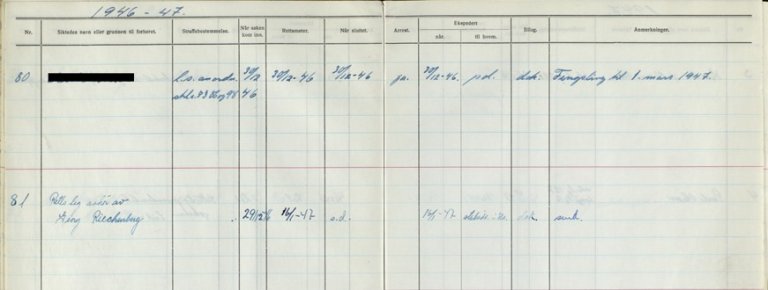 1946 - 47.
Nr. Siktedes navn eller grunnen til forhøret. Straffebestemmelse. Når saken kom inn. Rettsmøter. Når sluttet. Arrest. Ekspedert når. til hvem. Bilag. Anmerkninger.
80 l.s. anordn. 30/12 30/12-46 30/12-46 ja. 30/12-46. pol. dok. Fengsling til 1. mars 1947.
46
81 Rettslig av
Georg Riechenberg 29/12 46 14/1-47 s.d. 14/1-47 dok